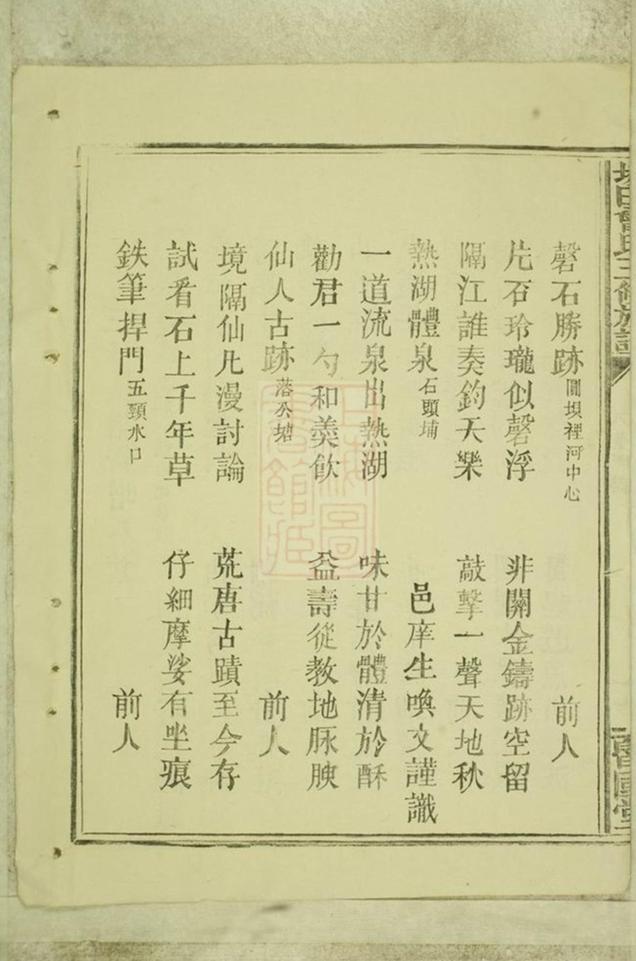 磬石勝跡 圓坝裡河中心 前人
片石玲瓏似磬浮 非關金鑄跡空留
隔江誰奏釣天樂 敲擊一聲天地秋
熱湖體泉 石頭埔 邑庠生喚文謹識
一道流泉出熱湖 味甘於體清於酥
勸君一勺和羮飲 益壽從教地脉腴
仙人古跡 落公塘 前人
境隔仙凡漫討論 荒唐古蹟至今存
試看石上千年草 仔細摩娑有坐痕
鉄筆捍門 五頸水口 前人